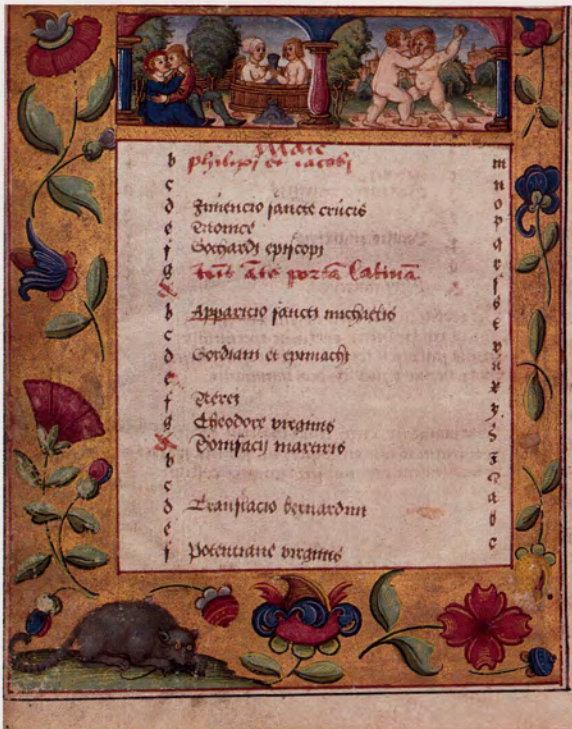 Maie
b philippi et iacobi m
c n
d Inuencio sancte crucis o
e Monice p
f Gothardi episcopi q
g iohis ante portã latinã r
A s
b Apparicio sancti michaelis
c t
d Gordiani et epimachi v
e
f Nerei x
g Theodore virginis y
A Bonifacij martiris
b
c a
d Translacio bernardini b
e c
f Potenciane virginis